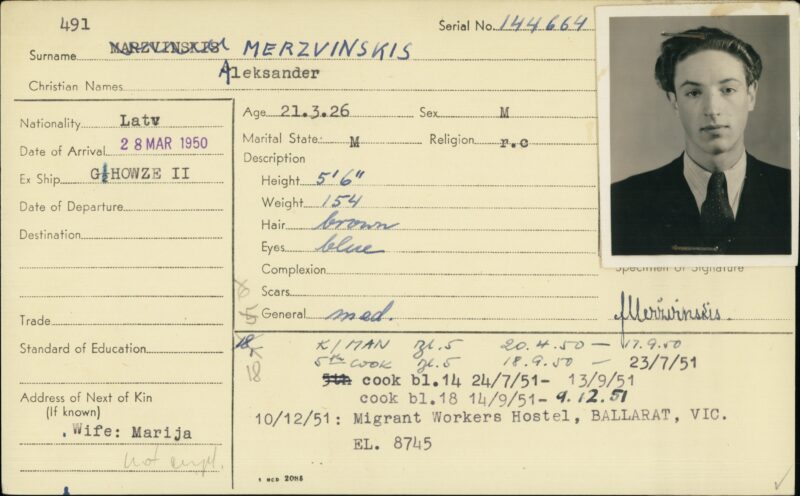 491
Serial No. 144664
Surname MARZVINSKIS MERZVINSKIS
Christian Names Aleksander
Nationality Latv
Date of Arrival 28 MAR 1950
Ex Ship G HOWZE II
Date of Departure
Destination
Trade
Standard of Education
Address of Next of Kin
(If known)
. Wife: Marija
not empl.
Age 21.3.26 Sex M
Marital State: M Religion r.c
Description
Height 5'6"
Weight 154
Hair brown
Eyes blue
Complexion
Scars
General med.
Specimen of Signature
Merzvinskis.
K/MAN Bl.5 20.4.50 — 17.9.50
5th COOK Bl.5 18.9.50 — 23/7/51
5th cook bl.14 24/7/51- 13/9/51
cook bl.18 14/9/51- 9.12.51
10/12/51: Migrant Workers Hostel, BALLARAT, VIC.
EL. 8745